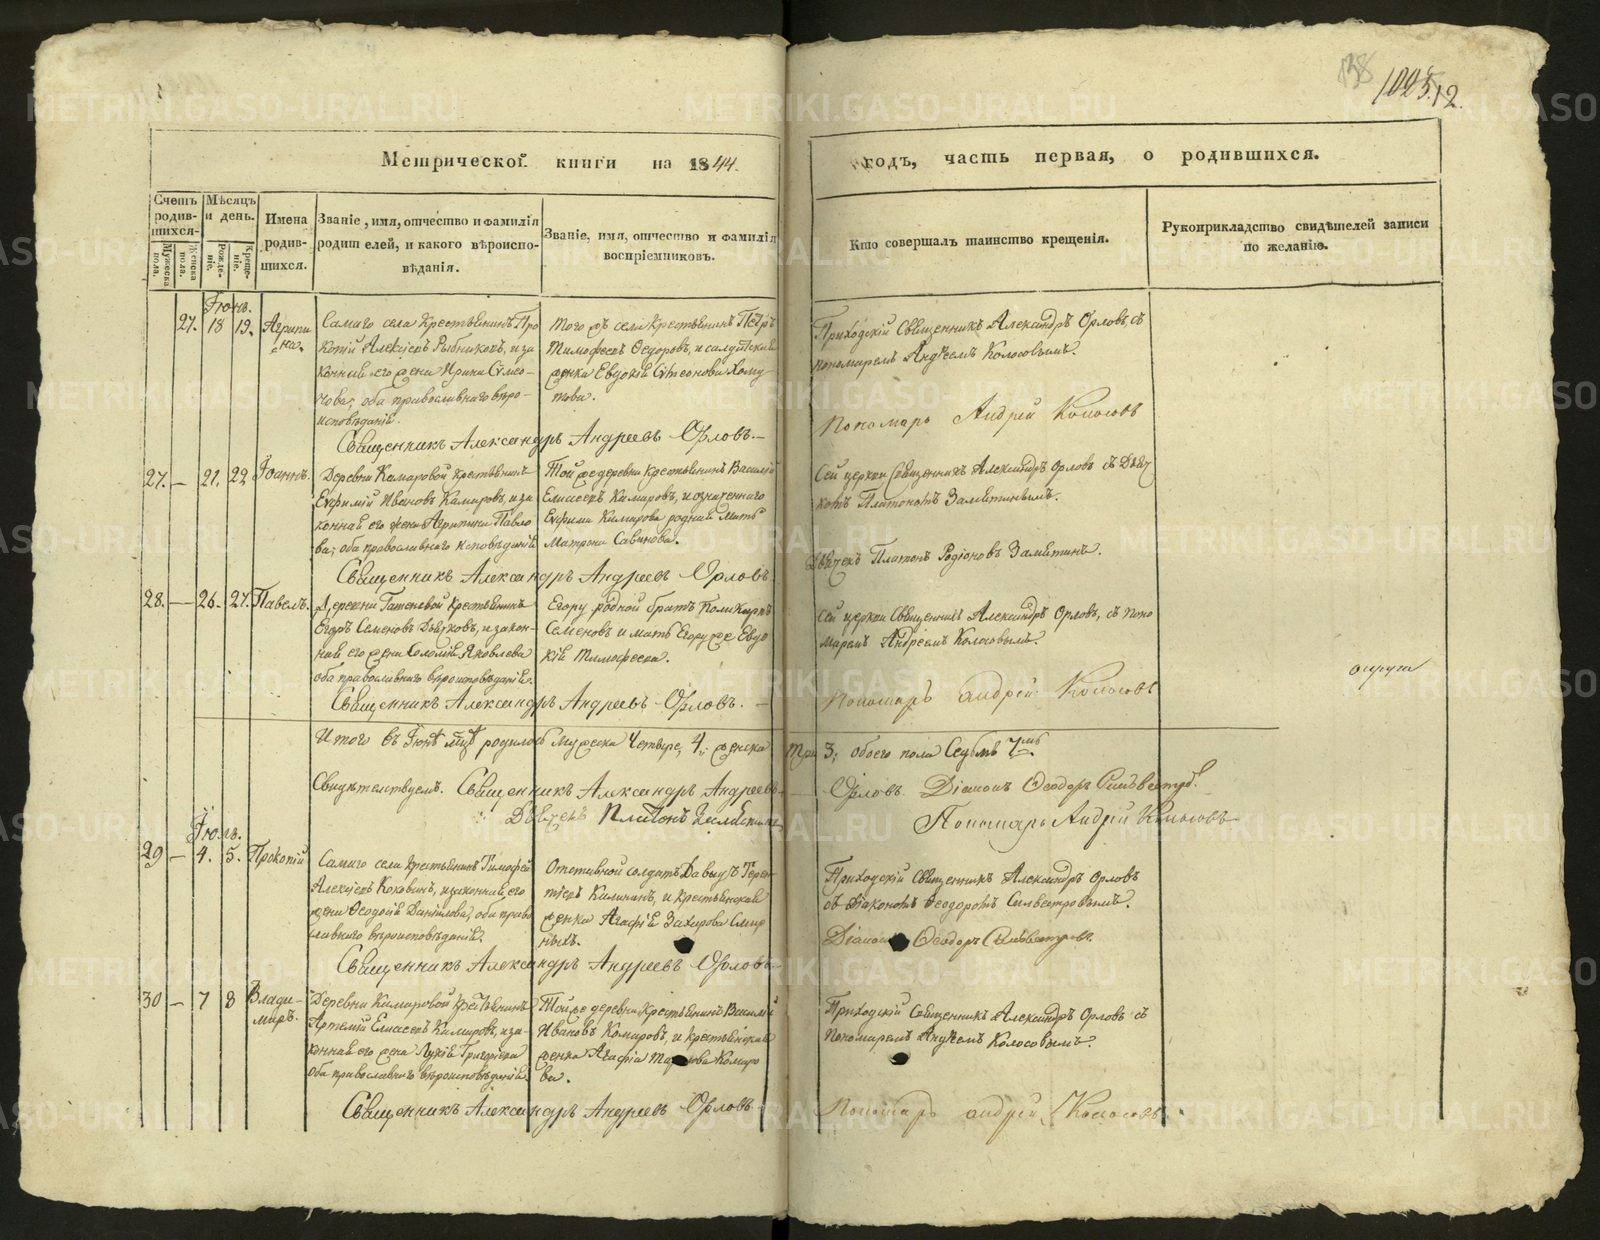 138
1025.12.
Метрической книги на 1844.
годъ, часть первая, о родившихся.
Счетъ родившихся.
Мѣсяцъ и день.
Имена родившихся.
Званіе, имя, отчество и фамилія
родителей, и какого вѣроиспо-
вѣданія.
Званіе, имя, отчество и фамилія
воспріемниковъ.
Кто совершалъ таинство крещенія.
Рукоприкладство свидѣтелей записи
по желанію.
Мужеска пола.
Женска пола.
Рожденіе.
Крещеніе.
Іюнь.
27. 18 19. Агрипи
на.
Самаго села Крестьянинъ Про
копій Алексѣевъ Рыбниковъ, и за
конная его жена Ирина Сѵмео-
нова, оба православнаго вѣро-
исповѣданія.
Того жъ села Крестьянинъ Петръ
Тимофеевъ Ѳедоровъ, и солдатская
женка Евдокія Сѵмеонова Хому
това.
Приходскій Священникъ Александръ Орловъ съ
пономаремъ Андреемъ Колосовымъ.
Пономарь Андрей Колосовъ
Священникъ Александръ Андреевъ Орловъ.
27. — 21. 22 Іоаннъ.
Деревни Камаровой Крестьянинъ
Евфимій Ивановъ Камаровъ, и за
конная его жена Агрипина Павло
ва, оба православнаго исповѣданія
Той же деревни Крестьянинъ Василій
Елисеевъ Камаровъ, и означеннаго
Евфима Камарова родная мать
Матрона Савинова.
Сей церкви Священникъ Александръ Орловъ съ Дьяч
комъ Платономъ Замятинымъ.
Дьячекъ Платонъ Родіоновъ Замятинъ.
Священникъ Александръ Андреевъ Орловъ
28. — 26. 27. Павелъ.
Деревни Гатеневой Крестьянинъ
Егоръ Семеновъ Дьячковъ, и закон-
ная его жена Соломія Яковлева
оба православнаго вѣроисповѣданія.
Егору родной братъ Поликарпъ
Семеновъ и мать Егору же Евдо
кія Тимофеева.
Сей церкви Священникъ Александръ Орловъ, съ поно
маремъ Андреемъ Колосовымъ.
Пономарь андрей Колосовъ
Священникъ Александръ Андреевъ Орловъ. —
Итого въ Іюнѣ мцѣ родилось мужеска Четыре, 4, женска Три 3, обоего пола Седмь 7мь
Свидѣтельствуемъ. Священникъ Александръ Андреевъ Орловъ. Діаконъ Ѳеодоръ Сильвестровъ.
Дьячекъ Платонъ Замятинъ
Пономарь Андрей Колосовъ
Іюль.
29 — 4. 5. Прокопій
Самаго села Крестьянинъ Тимофей
Алексѣевъ Коковинъ, и законная его
жена Ѳеодосія Даніилова, оба право
славнаго вѣроисповѣданія.
Отставной солдатъ Давыдъ Терен
тьевъ Калининъ, и Крестьянская
женка Агафія Захарова Смир
ныхъ.
Приходскій Священникъ Александръ Орловъ
съ Діакономъ Ѳеодоромъ Сильвестровымъ.
Діаконъ Ѳеодоръ Сильвестровъ.
Священникъ Александръ Андреевъ Орловъ.
30 — 7 8 Влади-
миръ.
Деревни Камаровой Крестьянинъ
Артемій Елисеевъ Камаровъ, и за-
конная его жена Лукія Григорьева
оба православнаго вѣроисповѣданія.
Той же деревни Крестьянинъ Василій
Ивановъ Комаровъ, и Крестьянская
женка Агафіа Комаро
ва.
Приходскій Священникъ Александръ Орловъ съ
Пономаремъ Андреемъ Колосовымъ.
Пономарь андрей Колосовъ
Священникъ Александръ Андреевъ Орловъ
METRIKI.GASO-URAL.RU